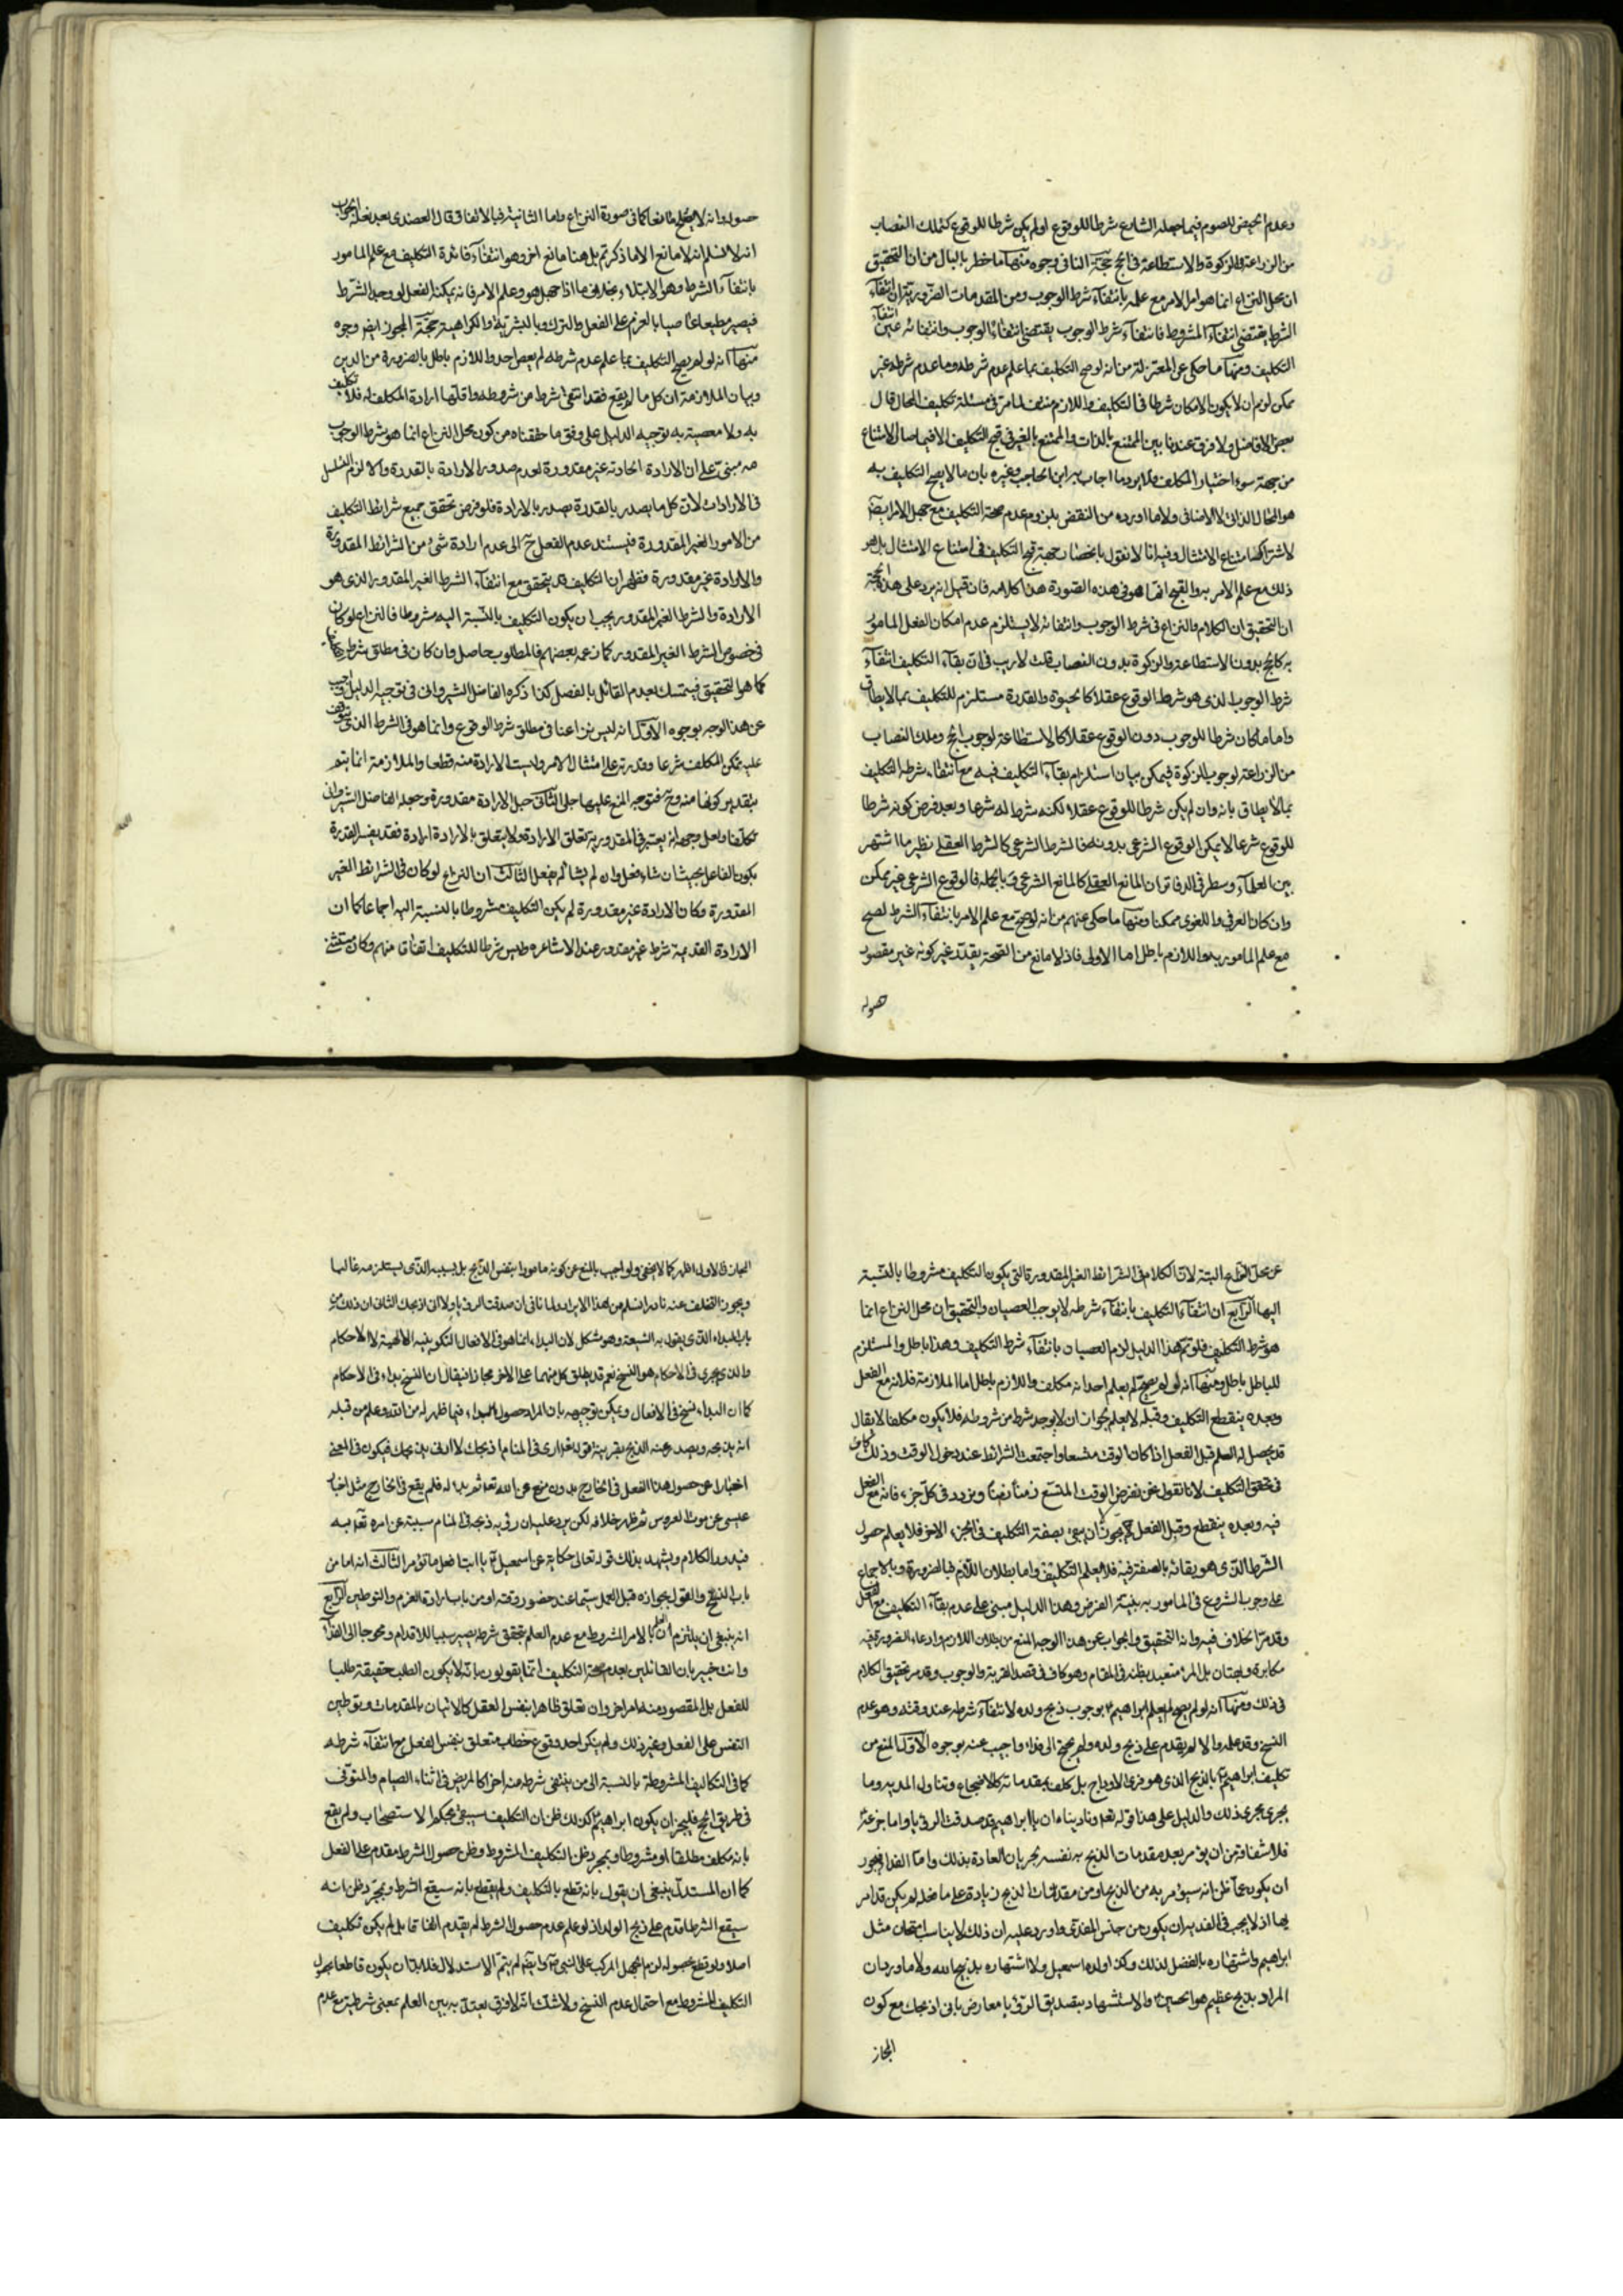 وعدم الحيض للصوم فيما جعله الشارع شرطا للوقوع او لم يكن شرطا للوقوع كتملك النصاب
من الزراعة للزكوة والاستطاعة في الحج حجة النافي وجوه منها ما خطر بالبال من ان التحقيق
ان محل النزاع انما هو امر الامر مع علمه بانتفآء شرط الوجوب ومن المقدمات الضرورية ان انتفآء
الشرط يقتضى انتفآء المشروط فانتفآء شرط الوجوب يقتضى انتفآء الوجوب وانتفائه عين انتفآء
التكليف ومنها ما حكى عن المعتزلة من انه لو صح التكليف بما علم عدم شرطه وما عدم شرطه غير
ممكن لزم ان لا يكون الامكان شرطا في التكليف واللازم منتف لما مر في مسئلة تكليف المحال قال
بعض الافاضل ولا فرق عندنا بين الممتنع بالذات والممتنع بالغير في قبح التكليف الا فيما صار الامتناع
من جهة سوء اختيار المكلف فلا يرد ما اجاب به ابن الحاجب وغيره بان ما لا يصح التكليف به
هو المحال الذاتى لا الاضافى ولا ما اورده من النقض بلزوم عدم صحة التكليف مع جهل الامر ايضا
لاشتراكهما في امتناع الامتثال وفيه انا لا نقول بانحصار جهة قبح التكليف في امتناع الامتثال بل هو
ذلك مع علم الامر به والقبح انما هو في هذه الصورة هذا كلامه فان قيل انه يرد على هذه الحجة
ان التحقيق ان الكلام والنزاع في شرط الوجوب وانتفائه لا يستلزم عدم امكان الفعل المامور
به كالحج بدون الاستطاعة والزكوة بدون النصاب قلت لا ريب في ان بقآء التكليف انتفآء
شرط الوجوب الذى هو شرط الوقوع عقلا كالحيوة والقدرة مستلزم للتكليف بما لا يطاق
واما ما كان شرطا للوجوب دون الوقوع عقلا كالاستطاعة لوجوب الحج وملك النصاب
من الزراعة لوجوب الزكوة فيمكن بيان استلزام بقآء التكليف فيه مع انتفاء شرطه التكليف
بما لا يطاق بانه وان لم يكن شرطا للوقوع عقلا لكنه شرط له شرعا وبعد فرض كونه شرطا
للوقوع شرعا لا يمكن الوقوع الشرعى بدونه فالشرط الشرعى كالشرط العقلى نظير ما اشتهر
بين العلمآء وسطر في الدفاتر ان المانع العقلى كالمانع الشرعى وبالجملة فالوقوع الشرعى غير ممكن
وان كان العرفى واللغوى ممكنا ومنها ما حكى عنهم من انه لو صح مع علم الامر بانتفآء الشرط لصح
مع علم المامور به واللازم باطل اما الاولى فاذ لا مانع من الصحة بقدر غير كونه غير مقصور
حصوله
حصوله وانه لا يصلح مانعا كما في صورة النزاع واما الثانية فبالاتفاق قال العضدى بعد نقله الجواب
انه لا نسلم انه لا مانع الا ما ذكرتم بل هنا مانع اخر وهو انتفآء فائدة التكليف مع علم المامور
بانتفآء الشرط وهو الابتلاء بخلاف ما اذا جهل هو وعلم الامر فانه يمكنه الفعل لو وجد الشرط
فيصير مطيعا عاصيا بالعزم على الفعل والترك وبالبشرية والكراهية حجة المجوز ايضا وجوه
منها انه لو لم يصح التكليف بما علم عدم شرطه لم يعص احد واللازم باطل بالضرورة من الدين
وبيان الملازمة ان كل ما لم يقع فقد انتفى شرط من شروطه واقلها ارادة المكلف له فلا تكليف
به ولا معصية به توجيه الدليل على وفق ما حققناه من كون محل النزاع انما هو شرط الوجوب
مبنى على ان الارادة الحادثة غير مقدورة لعدم صدور الارادة بالقدرة والا لزم التسلسل
في الارادات لان كل ما يصدر بالقدرة يصدر بالارادة فلو فرض تحقق جميع شرائط التكليف
من الامور الغير المقدورة فيستند عدم الفعل ح الى عدم ارادة شئ من الشرائط المقدورة
والارادة غير مقدورة فظهر ان التكليف قد يتحقق مع انتفآء الشرط الغير المقدور الذى هو
الارادة والشرط الغير المقدور يجب ان يكون التكليف بالنسبة اليه مشروطا فالنزاع لو كان
في خصوص الشرط الغير المقدور كما زعمه بعضهم فالمطلوب حاصل وان كان في مطلق شرط
كما هو التحقيق فيتمسك بعدم القائل بالفصل كذا ذكره الفاضل الشيروانى في توجيه الدليل واجيب
عن هذا الوجه بوجوه الاول انه ليس نزاعنا في مطلق شرط الوقوع وانما هو في الشرط الذى يتوقف
عليه تمكن المكلف شرعا وقدرته على امتثال الامر وليست الارادة منه قطعا والملازمة انما يتم
بتقدير كونها منه وح فتوجه المنع عليها جلى الثانى جعل الارادة مقدورة وجعله الفاضل الشيروانى
تكلفا ولعل وجهه انه يعتبر في المقدورية تعلق الارادة ولا يتعلق بالارادة ارادة فقد يفسر القدرة
بكون الفاعل بحيث ان شاء فعل وان لم يشأ لم يفعل الثالث ان النزاع لو كان في الشرائط الغير
المقدورة وكان الارادة غير مقدورة لم يكن التكليف مشروطا بالنسبة اليه اجماعا كما ان
الارادة القديمة شرط غير مقدور عند الاشاعره وليس شرطا للتكليف اتفاقا منهم وكان مستثنى
عن محل النزاع البتة لان الكلام في الشرائط الغير المقدورة التى يكون التكليف مشروطا بالنسبة
اليها الرابع ان انتفآء التكليف بانتفآء شرطه لا يوجب العصيان والتحقيق ان محل النزاع انما
هو شرط التكليف فلو تم هذا الدليل لزم العصيان بانتفآء شرط التكليف وهذا باطل والمستلزم
للباطل باطل ومنها انه لو لم يصح لم يعلم احد انه مكلف واللازم باطل اما الملازمة فلانه مع الفعل
وبعده ينقطع التكليف وقبله لا يعلم لجواز ان لا يوجد شرط من شروطه فلا يكون مكلفا لا يقال
قد يحصل له العلم قبل الفعل اذا كان الوقت متسعا واجتمعت الشرائط عند دخول الوقت وذلك كاف
في تحقق التكليف لانا نقول نحن نفرض الوقت المتسع زمنا زمنا ونردد في كل جزء فانه مع الفعل
فيه وبعده ينقطع وقبل الفعل يجوز ان لا يبقى بصفة التكليف في الجزء الاخر فلا يعلم حصول
الشرط الذى هو بقائه بالصفة فيه فلا يعلم التكليف واما بطلان اللازم فبالضرورة وبالاجماع
على وجوب الشروع في المامور به بنية الفرض وهذا الدليل مبنى على عدم بقآء التكليف مع الفعل
وقد مر الخلاف فيه وانه التحقيق والجواب عن هذا الوجه المنع من بطلان اللازم وادعاء الضرورة فيه
مكابرة وبهتان بل المرء متعبد بظنه في المقام وهو كاف في قصد القربة والوجوب وقد مر تحقيق الكلام
في ذلك ومنها انه لو لم يصح لم يعلم ابراهيم بوجوب ذبح ولده لانتفآء شرطه عند وقته وهو عدم
النسخ وقد علمه والا لم يقدم على ذبح ولده ولم يحتج الى فداء واجيب عنه بوجوه الاول المنع من
تكليف ابراهيم بالذبح الذى هو فرى الاوداج بل كلف بمقدماته كالاضجاع وتناول المدية وما
يجرى مجرى ذلك والدليل على هذا قوله تعالى وناديناه ان يا ابراهيم قد صدقت الرؤيا واما جزعه
فلاشفاقه من ان يؤمر بعد مقدمات الذبح به نفسه لجريان العادة بذلك واما الفداء فيجوز
ان يكون عما ظن انه سيؤمر به من الذبح او من مقدمات الذبح زيادة على ما فعله لم يكن قد امر
بها اذ لا يجب في الفدية ان يكون من جنس المفدى واورد عليه ان ذلك لا يناسب امتحان مثل
ابراهيم واشتهاره بالفضل لذلك وكذا ولده اسمعيل ولا اشتهاره بذبيح الله ولا ما ورد ان
المراد بذبح عظيم هو الحسين والاستشهاد بتصديق الرؤيا معارض بانى اذبحك مع كون
المجاز
المجاز في الاول اظهر كما لا يخفى ولو اجيب بالمنع عن كونه مامورا بنفس الذبح بل بسببه الذى يستلزمه غالبا
ويجوز التخلف عنه نادرا لسلم من هذا الايراد لمنافى ان صدقت الرؤيا ولا انى اذبحك الثانى ان ذلك من
باب البداء الذى يقول به الشيعة وهو مشكل لان البداء انما هو في الافعال التكوينية الالهية لا الاحكام
والذى يجرى في الاحكام هو النسخ نعم قد يطلق كل منهما على الاخر مجازا فيقال ان النسخ بداء في الاحكام
كما ان البداء نسخ في الافعال ويمكن توجيهه بان المراد حصول البداء فيما ظهر له من الله وعلم من قبله
انه يذبحه ويصدر عنه الذبح بقرينة قوله انى ارى في المنام اذبحك لا انى يذبحك فيكون في المعنى
اخبارا عن حصول هذا الفعل في الخارج بدون منع من الله تعالى ثم بدا له فلم يقع في الخارج مثل اخبار
عيسى عن موت العروس ثم ظهر خلافه لكن يرد عليه ان رؤية ذبحه في المنام مسببة عن امره تعالى به
فيدور الكلام ويشهد بذلك قوله تعالى حكاية عن اسمعيل يا ابت افعل ما تؤمر الثالث انه اما من
باب النسخ والقول بجوازه قبل العمل سيما عند حضور وقته او من باب ارادة العزم والتوطين الرابع
انه ينبغى ان يلتزم ان العلم بالامر المشروط مع عدم العلم بتحقق شرطه يصير سببا للاقدام ومحوجا الى الفداء
وانت خبير بان القائلين بعدم صحة التكليف انما يقولون بانه لا يكون الطلب حقيقة طلبا
للفعل بل المقصود منه امر اخر وان تعلق ظاهرا بنفس الفعل كالاتيان بالمقدمات وتوطين
النفس على الفعل وغير ذلك ولم ينكر احد وقوع خطاب متعلق بنفس الفعل مع انتفآء شرطه
كما في التكاليف المشروطة بالنسبة الى من ينتفى شرطه منه اخرا كالمريض في اثناء الصيام والمتوفى
في طريق الحج فليجز ان يكون ابراهيم كذلك ظن ان التكليف سيبقى بحكم الاستصحاب ولم يقع
بانه مكلف مطلقا او مشروطا وبمجرد ظن التكليف المشروط وظن حصول الشرط مقدم على الفعل
كما ان المستدل ينبغى ان يقول بانه قطع بالتكليف ولم يقطع بانه سيقع الشرط وبمجرد ظن انه
سيقع الشرط اقدم على ذبح الولد اذ لو علم عدم حصول الشرط لم يقدم اتفاقا بل لم يكن تكليف
اصلا ولو قطع بحصوله لزم الجهل المركب على النبى وايضا لم يتم الاستدلال فلا بد ان يكون قاطعا بحصول
التكليف المشروط مع احتمال عدم النسخ ولا شك انه لا فرق يعتد به بين العلم بمعنى شرطيته مع عدم